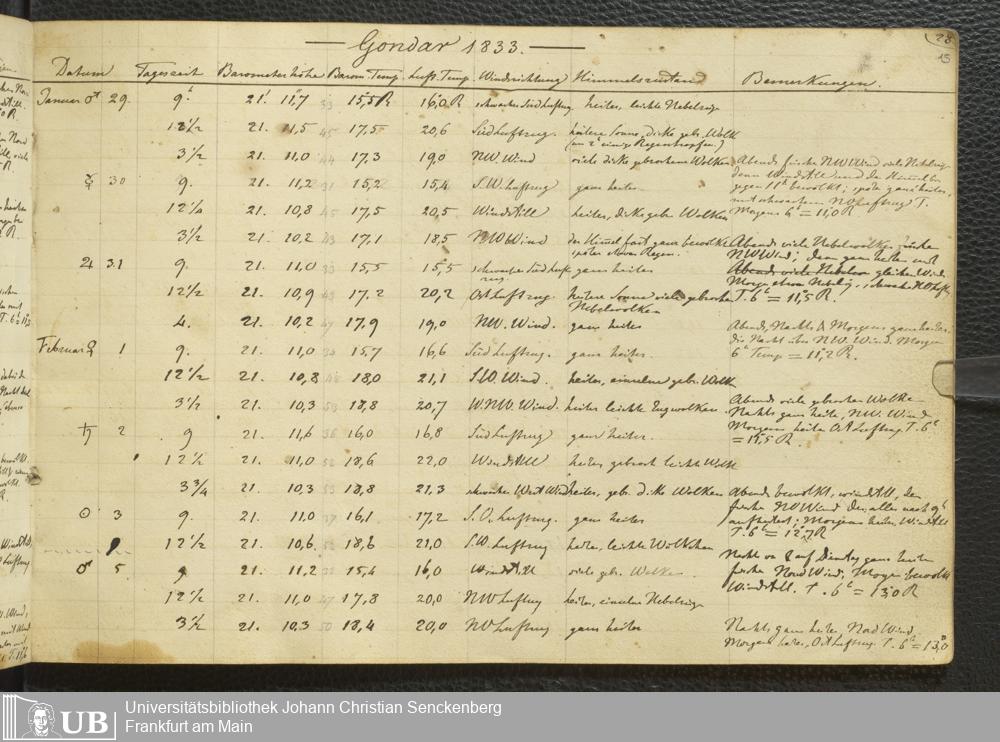 — Gondar 1833. —
28
15
Datum Tageszeit Barometerhöhe Barom. Temp. Luft Temp. Windrichtung Himmelszustand Bemerkungen.
Januar ♂ 29. 9h 21! 11,7 33 15,5 R 16,0 R schwacher Südluftzug heiter, leichte Nebelzüge
12 1/2 21. 11,5 45 17,5 20,6 Südluftzug. heitere Sonne, dicke gebr. Wolk
(um 2h einige Regentropfen.)
3 1/2 21. 11,0 44 17,3 19,0 NW. Wind viele dicke gebrochene Wolken Abends frischer NW Wind viele Nebelzüge
dann Windstill und der Himmel
☿ 30 9. 21. 11,2 31 15,2 15,4 S.W. Luftzug ganz heiter gegen 11h bewolkt; später ganz heiter,
mit schwachem NW Luftzug T.
12 1/2 21. 10,8 45 17,5 20,5 Windstill heiter, dicke gebr. Wolken Morgens 6h = 11,0 R
3 1/2 21. 10,2 43 17,1 18,5 NW Wind der Himel fast ganz bewolkt Abends viele Nebelwolken
später etwas Regen. NW Wind; dann ganz heiter und
♃ 31. 9. 21. 11,0 33 15,5 15,5 schwacher Südluft ganz heiter
zug
12 1/2 21. 10,9 43 17,2 20,2 Ostluftzug. heitere Sonne viele gebrochene T. 6h = 11,5 R.
Nebelwolken
4. 21. 10,2 47 17,9 19,0 NW. Wind. ganz heiter Abends, Nachts & Morgens ganz heiter.
die Nacht NW. Wind. Morgen
Februar ♀ 1 9. 21. 11,0 34 15,7 16,6 Südluftzug. ganz heiter. 6h Temp = 11,2 R.
12 1/2 21. 10,8 48 18,0 21,1 S.W. Wind. heiter, einzelne gebr. Wolk
3 1/2 21. 10,3 53 18,8 20,7 W.NW. Wind. heiter leichte Zugwolken Abends viele gebrochene Wolken
Nachts ganz heiter, NW. Wind
♄ 2 9 21. 11,6 36 16,0 16,8 Südluftzug ganz heiter. Morgens heiter Ost Luftzug T. 6h
= 11,5 R.
12 1/2 21. 11,0 52 18,6 22,0 Windstill heiter, gebroch leichte Wolk
3 3/4 21. 10,3 53 18,8 21,3 schwacher West Wind heiter, gebr. dicke Wolken Abends bewolkt, windstill, dann
frischer NW Wind der alles nach 9h
☉ 3 9. 21. 11,0 37 16,1 17,2 S.O. Luftzug. ganz heiter aufheitert; Morgens heiter, Windstill
T. 6h = 12,7 R
12 1/2 21. 10,6 52 18,6 21,0 S.W. Luftzug heiter, leichte Wölkchen
♂ 5 9 21. 11,2 32 15,4 16,0 Windstill viele gebr. Wolken Nacht von auf Dienstag ganz heiter
frischer Nord Wind, Morgen bewolkt
Windstill. T. 6h = 13,0 R
12 1/2 21. 11,0 47 17,8 20,0 NW Luftzug heiter, einzelne Nebelzüge
3 1/2 21. 10,3 50 18,4 20,0 NW Luftzug ganz heiter Nachts ganz heiter, Nord Wind
Morgens heiter, Ost Luftzug. T. 6h = 13,0
UB Universitätsbibliothek Johann Christian Senckenberg
Frankfurt am Main